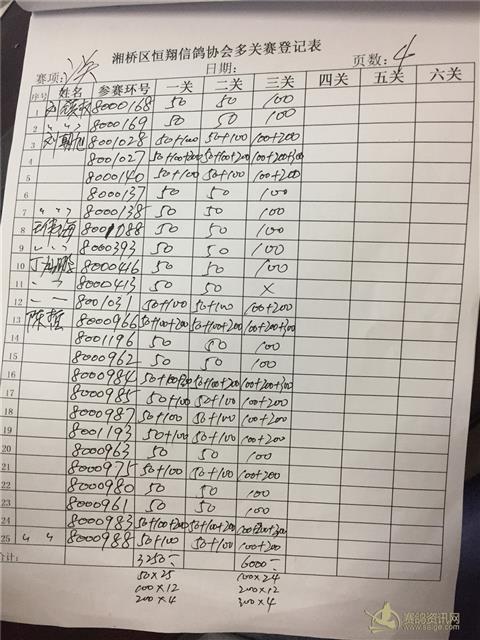 湘桥区恒翔信鸽协会多关赛登记表
赛项: 决 日期: 页数: 4
序号 姓名 参赛环号 一关 二关 三关 四关 五关 六关
1 8000168 50 50 100
2 〃 〃 8000169 50 50 100
3 8001028 50+100 50+100 100+200
4 8001027 50+100+200 50+100+200 100+200+300
5 8000140 50+100 50+100 100+200
6 8000137 50 50 100
7 〃 〃 8000138 50 50 100
8 8001088 50 50 100
9 〃 〃 8000393 50 50 100
10 8000416 50 50 100
11 〃 〃 8000413 50 50 ×
12 8001031 50+100 50+100 100+200
13 陈哲 8000966 50+100+200 50+100+200 100+200+300
14 8001196 50 50 100
15 8000962 50 50 100
16 8000984 50+100+200 50+100+200 100+200+300
17 8000985 50+100 50+100 100+200
18 8000987 50+100 50+100 100+200
19 8001193 50+100 50+100 100+200
20 8000963 50 50 100
21 8000975 50+100 50+100 100+200
22 8000980 50 50 100
23 8000961 50 50 100
24 8000983 50+100+200 50+100+200 100+200+300
25 〃 〃 8000988 50+100 50+100 100+200
合计: 3250- 6000-
50×25 100×24
100×12 200×12
200×4 300×4
赛鸽资讯网
www.saige.com